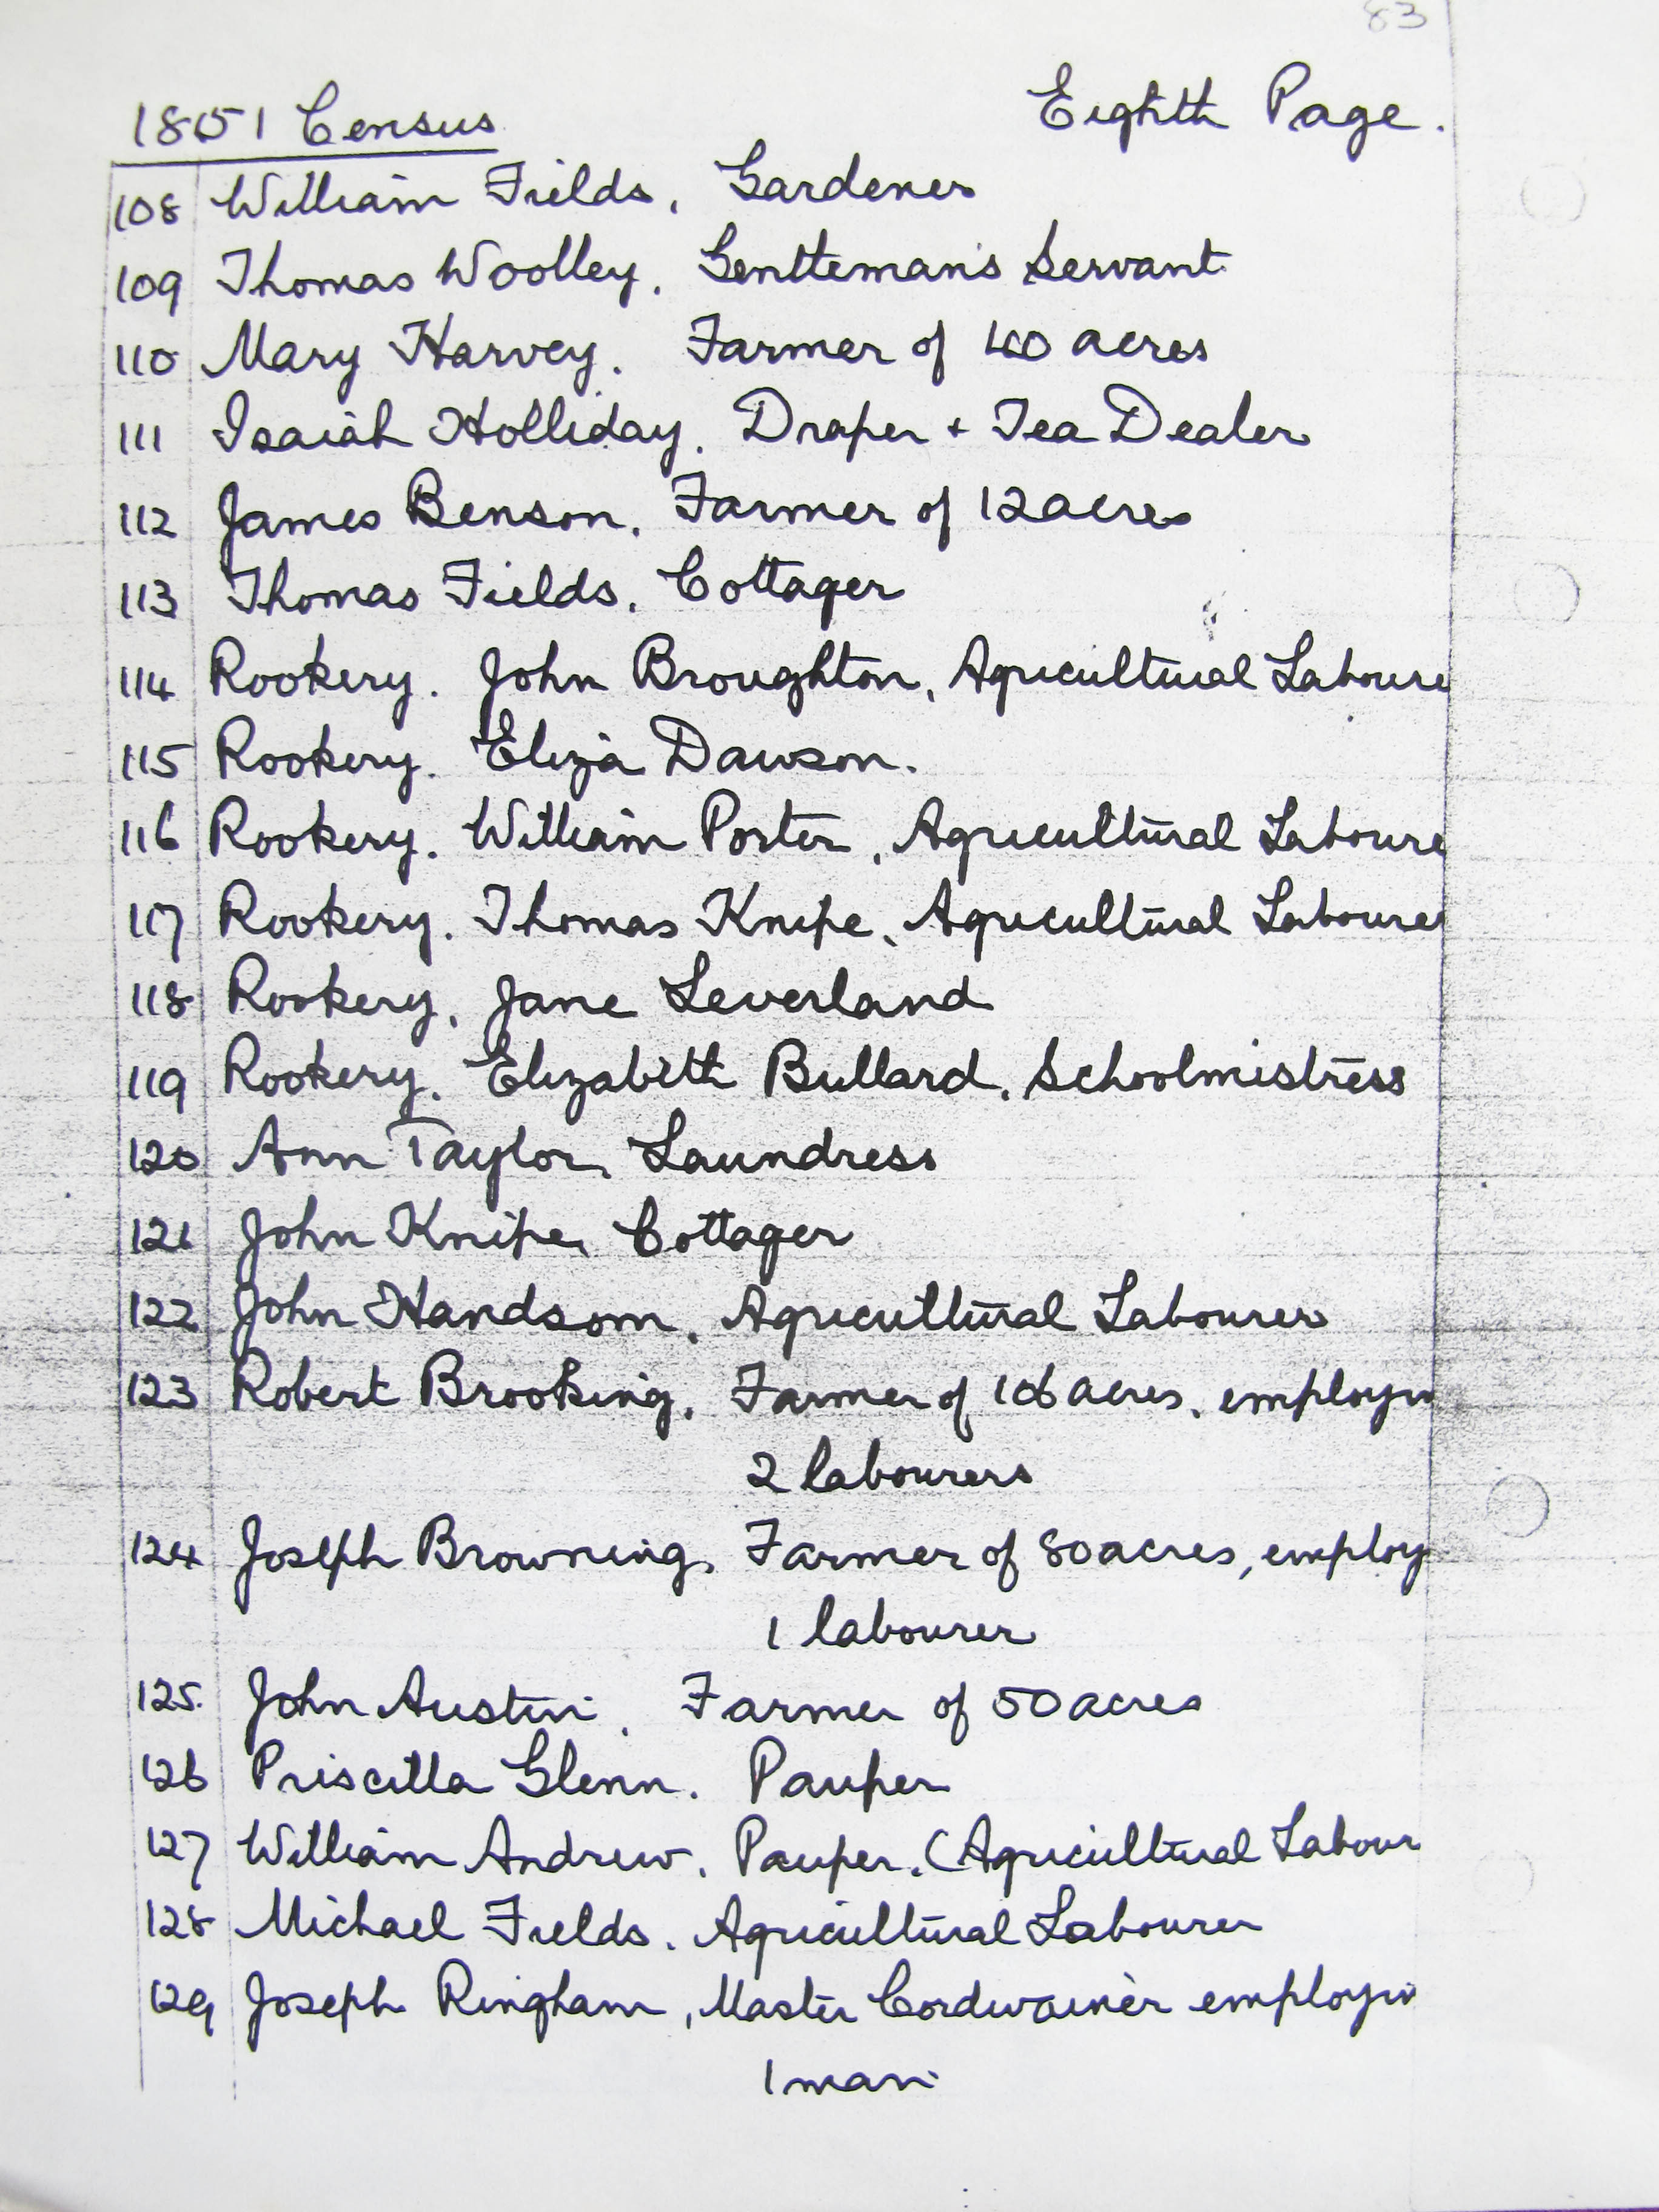 83
1851 Census
Eighth Page.
108 William Fields, Gardener
109 Thomas Woolley, Gentleman's Servant
110 Mary Harvey. Farmer of 40 acres
111 Isaiah Holliday. Draper + Tea Dealer
112 James Benson. Farmer of 12 acres
113 Thomas Fields. Cottager
114 Rookery. John Broughton, Agricultural Laboure
115 Rookery. Eliza Dawson.
116 Rookery. William Porter, Agricultural Laboure
117 Rookery. Thomas Knipe, Agricultural Labourer
118 Rookery, Jane Leverland
119 Rookery. Elizabeth Bullard. Schoolmistress
120 Ann Taylor, Laundress
121 John Knipe, Cottager
122 John Handsom, Agricultural Labourer
123 Robert Brooking, Farmer of acres, employin
2 labourers
124 Joseph Browning, Farmer of 80 acres, employ
1 labourer
125. John Austin, Farmer of 50 acres
126 Priscilla Glenn. Pauper
127 William Andrew. Pauper. (Agricultural Labour
128 Michael Fields. Agricultural Labourer
129 Joseph Ringham, Master Cordwainer employin
1 man